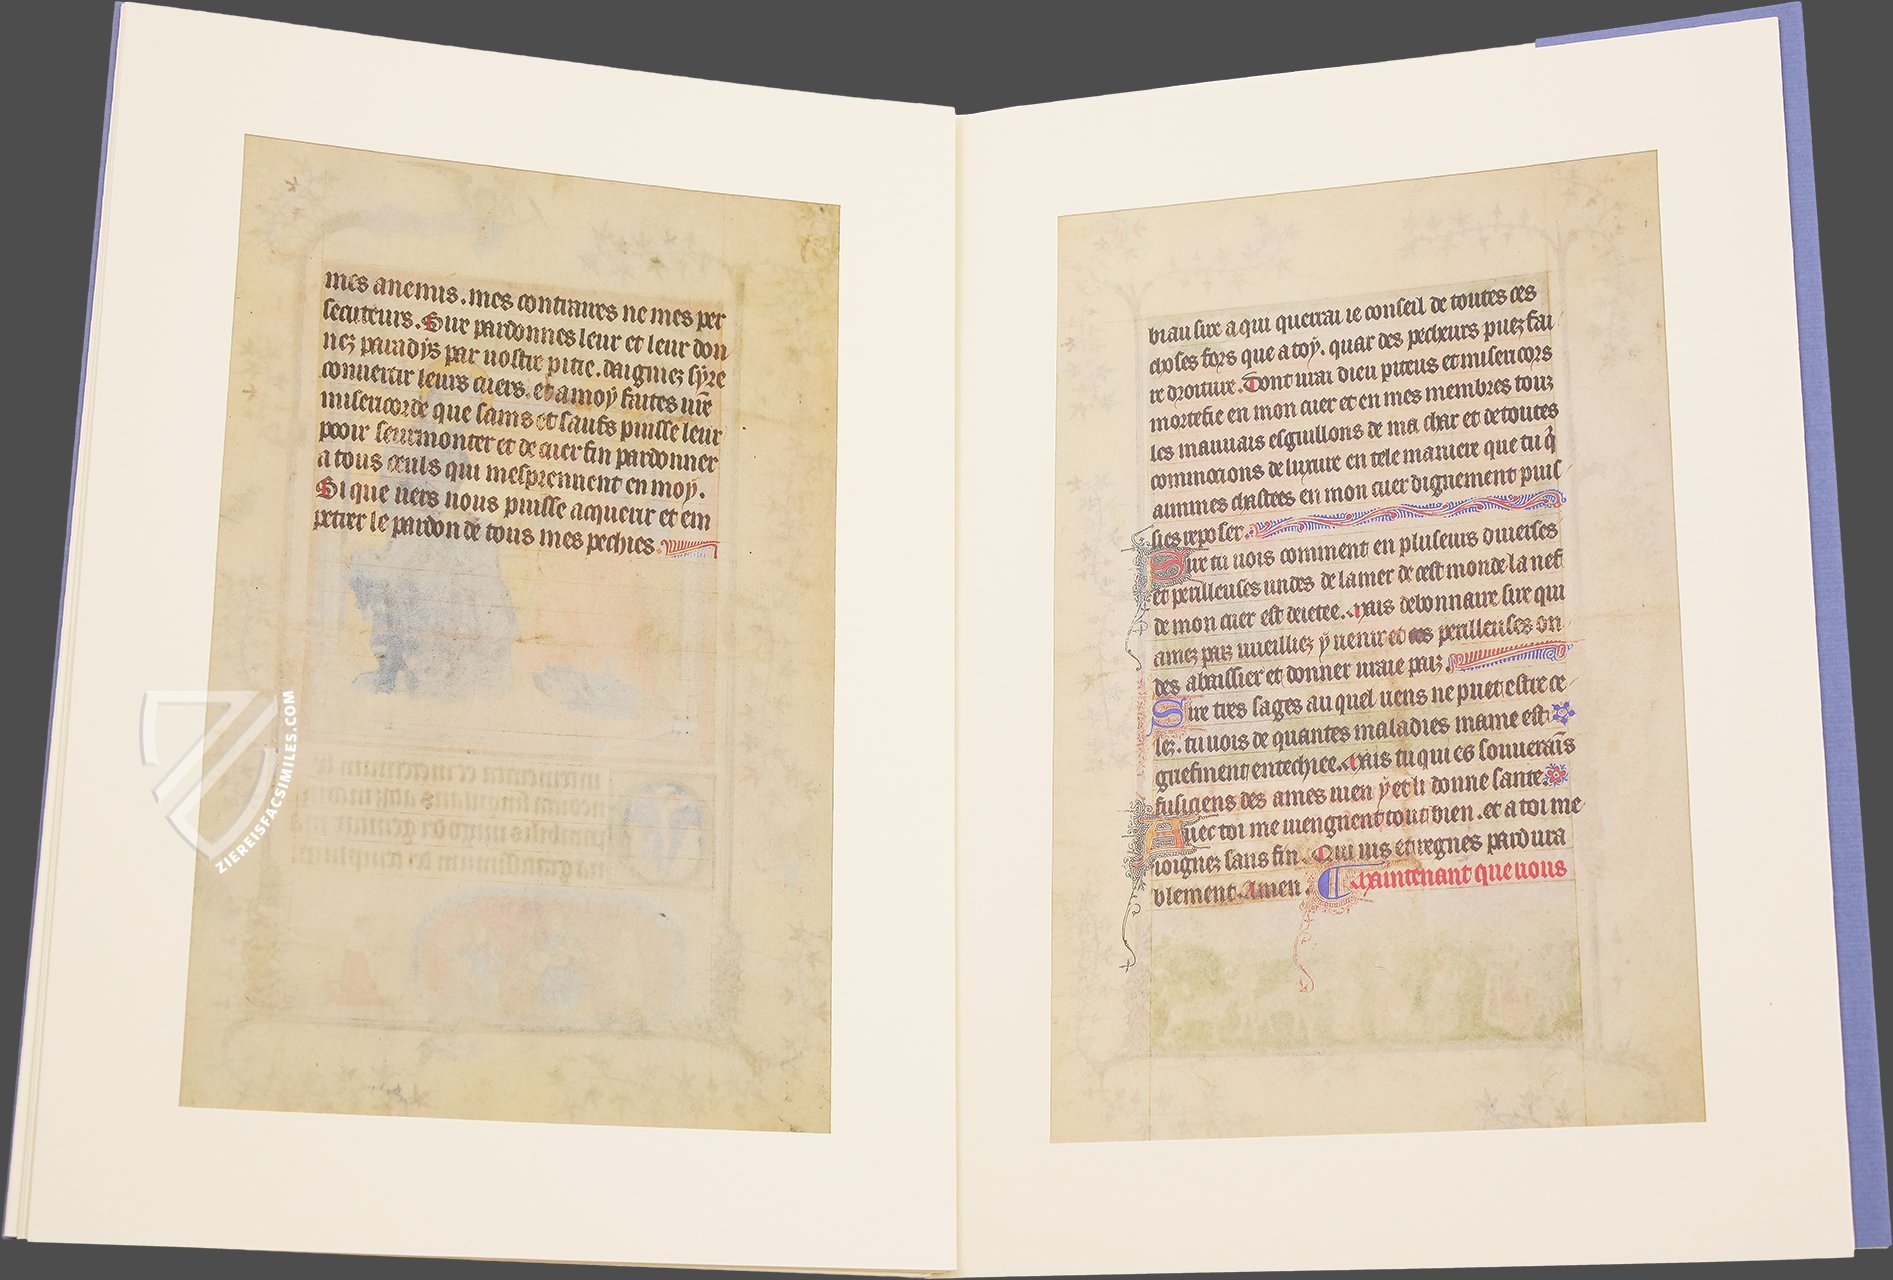 mes anemis. mes contraires ne mes per
secuteurs. Sire pardonnes leur et leur don
nez paradÿs par uostre pitie. daigniez sÿre
conuertir leurs cuers. et a moÿ faites ur̄e
misericorde que sains et saufs puisse leur
pooir seurmonter et de cuer fin pardonner
a tous ceuls qui mesprennent en moÿ.
Si que uers uous puisse acquerir et em
petrer le pardon de tous mes pechies.
biau sire a qui querrai ie conseil de toutes ces
choses fors que a toÿ. quar des pecheurs puez fai
re droiture. Dont urai dieu piteus et misericors
mortefie en mon cuer et en mes membres touz
les mauuais esguillons de ma char et de toutes
commocions de luxure en tele maniere que tu q̄
aimmes chastees en mon cuer dignement puis
ses reposer.
Sire tu uois comment en pluseurs diuerses
et perilleuses undes de la mer de cest monde la nef
de mon cuer est deietee. Mais debonnaire sire qui
amez paiz uueilliez ÿ uenir et ces perilleuses on
des abaissier et donner uraie paiz
Sire tres sages au quel riens ne puet estre ce
lez. tu uois de quantes maladies mame est
griefment entechiee. Mais tu qui es souuerai̅s
fusiciens des ames uien ÿ et li donne sante.
Auec toi me uiengnent tout bien. et a toi me
ioignez sans fin. Qui uis et regnes pardura
blement. Amen. Maintenant que uous
ZIEREISFACSIMILES.COM